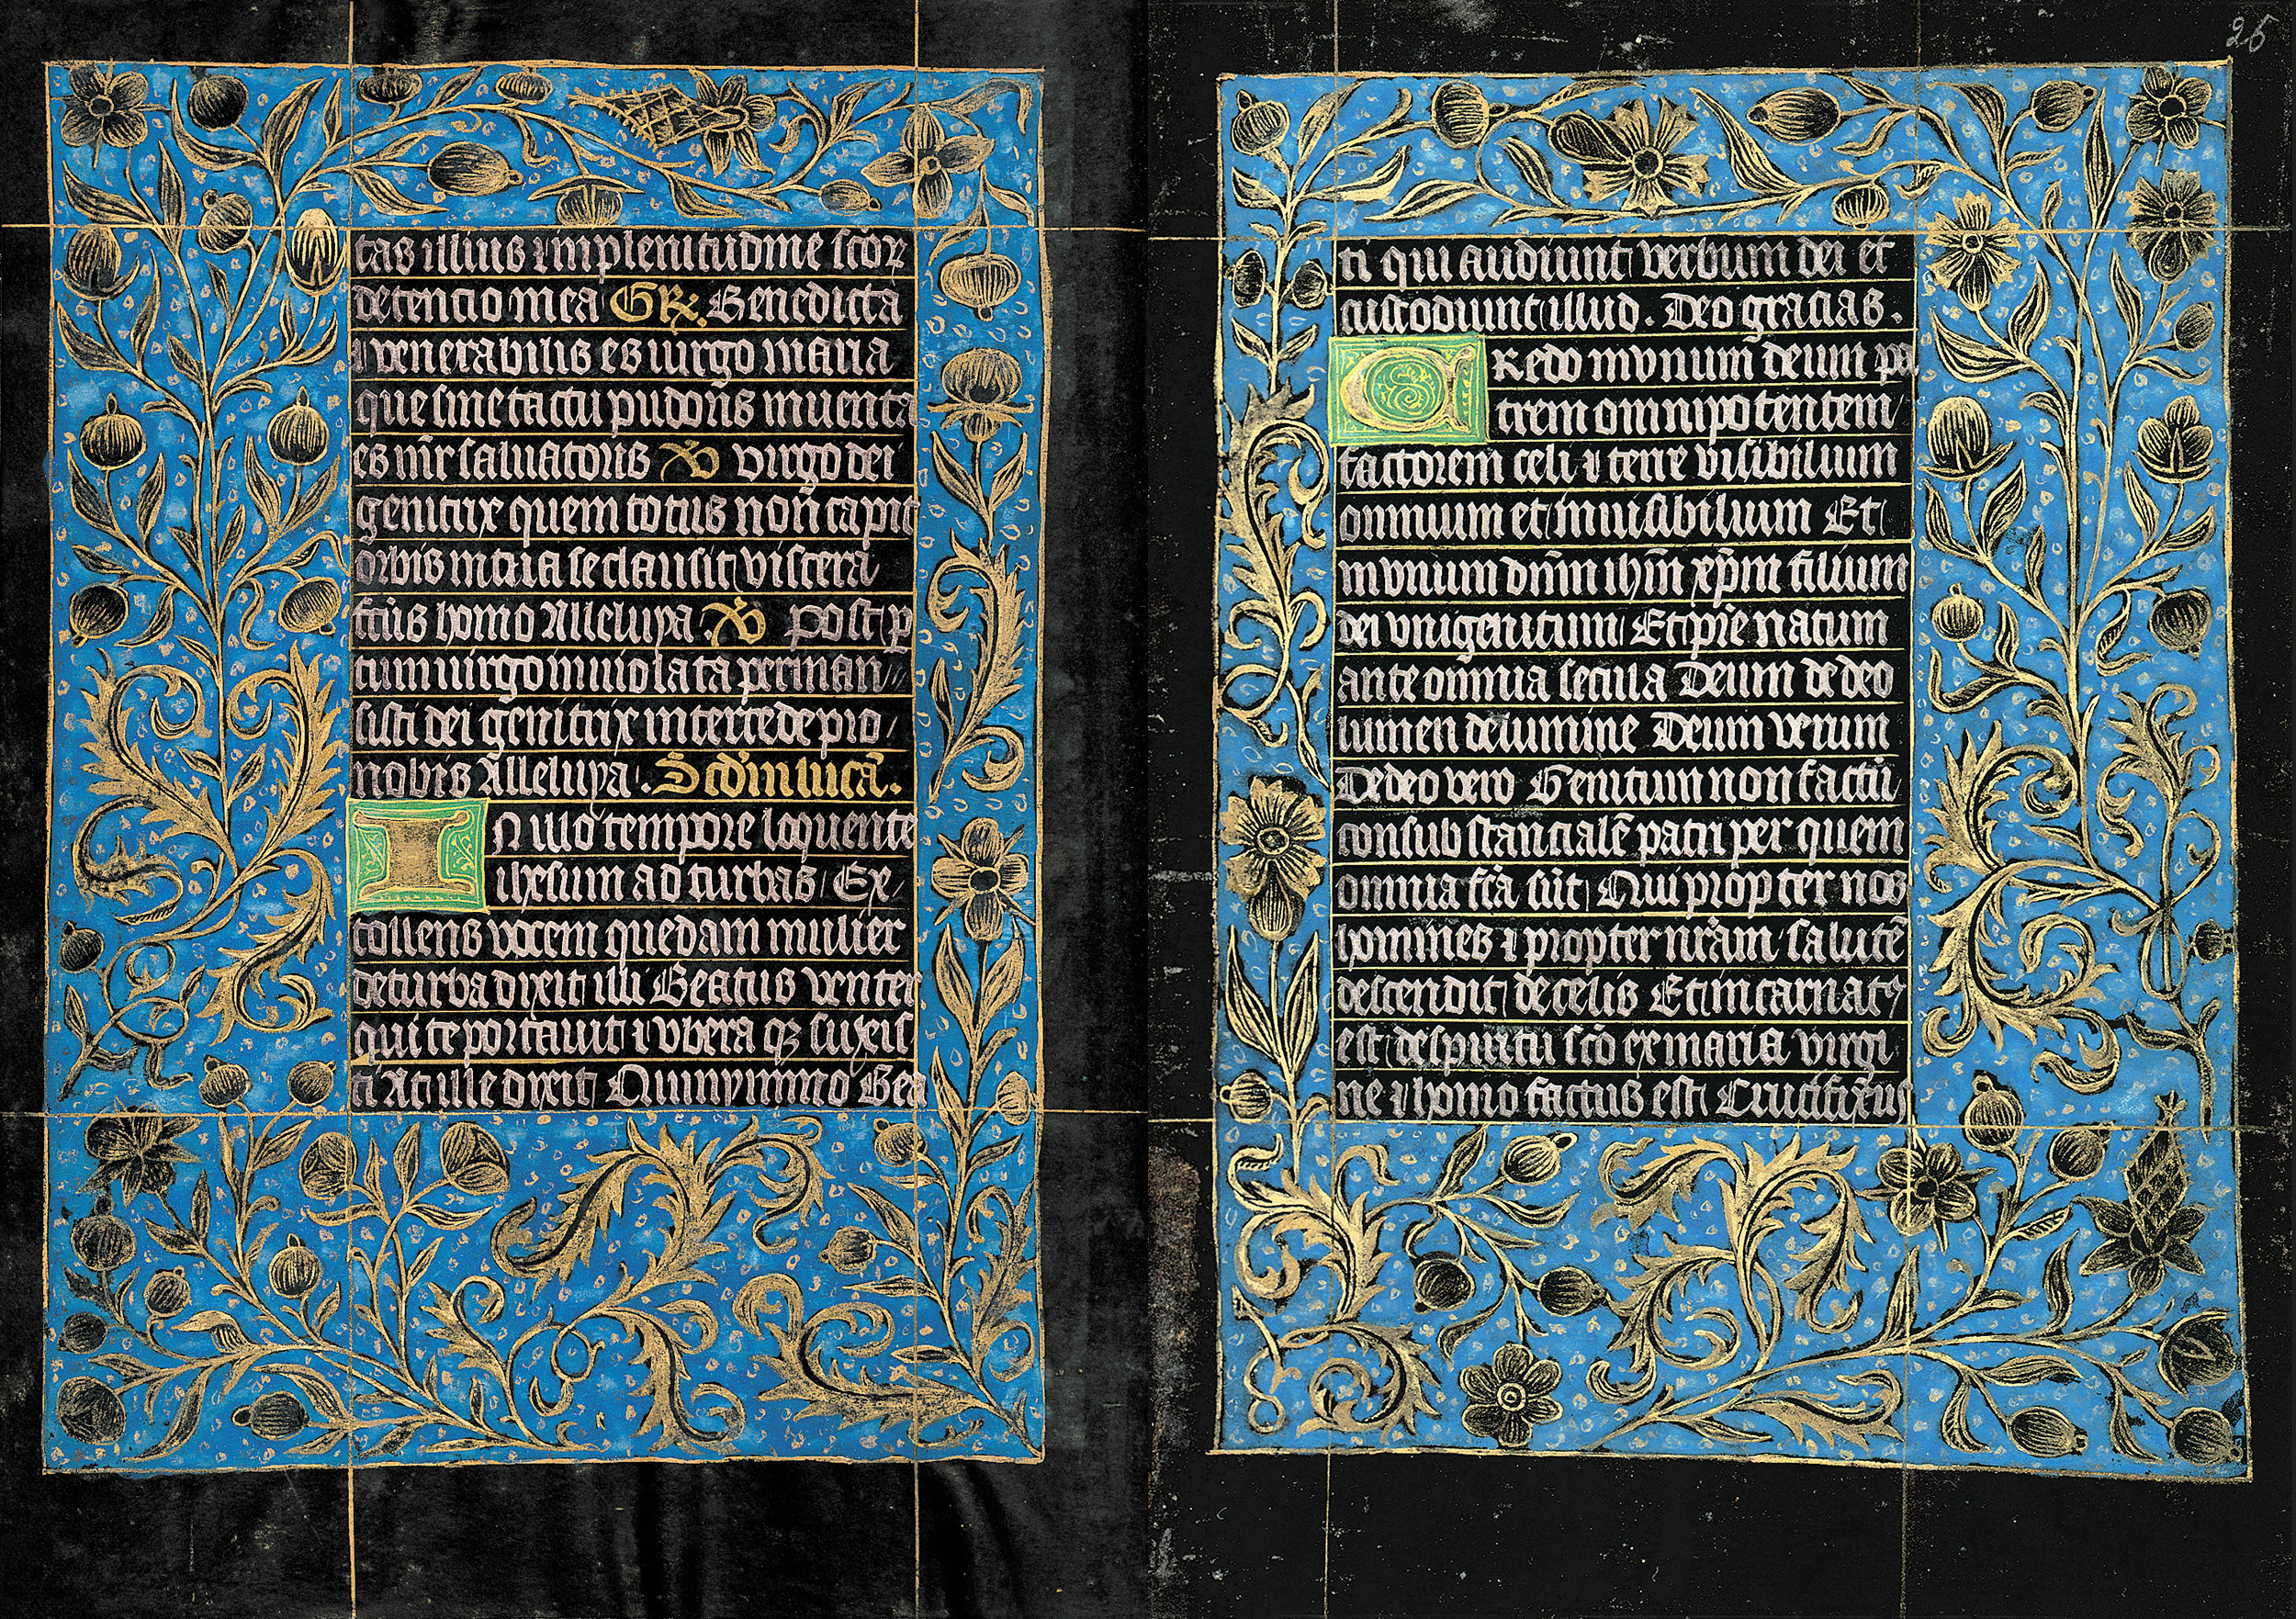 tas illius ⁊ in plenitudine scōr
detencio mea GR̄. Benedicta
⁊ venerabilis es uirgo maria
que sine tactu pudoris inuenta
es mr̄ saluatoris ℣ virgo dei
genitrix quem totus non capit
orbis in tua se clausit viscera
fctūs homo Alleluya. ℣ post p
tum uirgo inuiolata perman
sisti dei genitrix intercede pro
nobis Alleluya. Scd̄m lucā.
In illo tempore loquente
ihesum ad turbas Ex
tollens vocem quedam mulier
de turba dixit illi Beatus venter
qui te portauit ⁊ vbera q̄ suxis
ti At ille dixit Quinymmo Bea
25
ti qui audiunt verbum dei et
custodiunt illud. Deo gracias.
Credo in vnum deum pa
trem omnipotentem
factorem celi ⁊ terre visibilium
omnium et inuisibilium Et
in vnum dn̄m ihm̄ xp̄m filium
dei vnigenitum Et ex pr̄e natum
ante omnia secula Deum de deo
lumen de lumine Deum verum
De deo vero Genitum non factū
consubstancialē patri per quem
omnia fcā sūt Qui propter nos
homines ⁊ propter nr̄am salutē
descendit de celis Et incarnatꝰ
est de spiritu scō ex maria virgi
ne ⁊ homo factus est Crucifixus